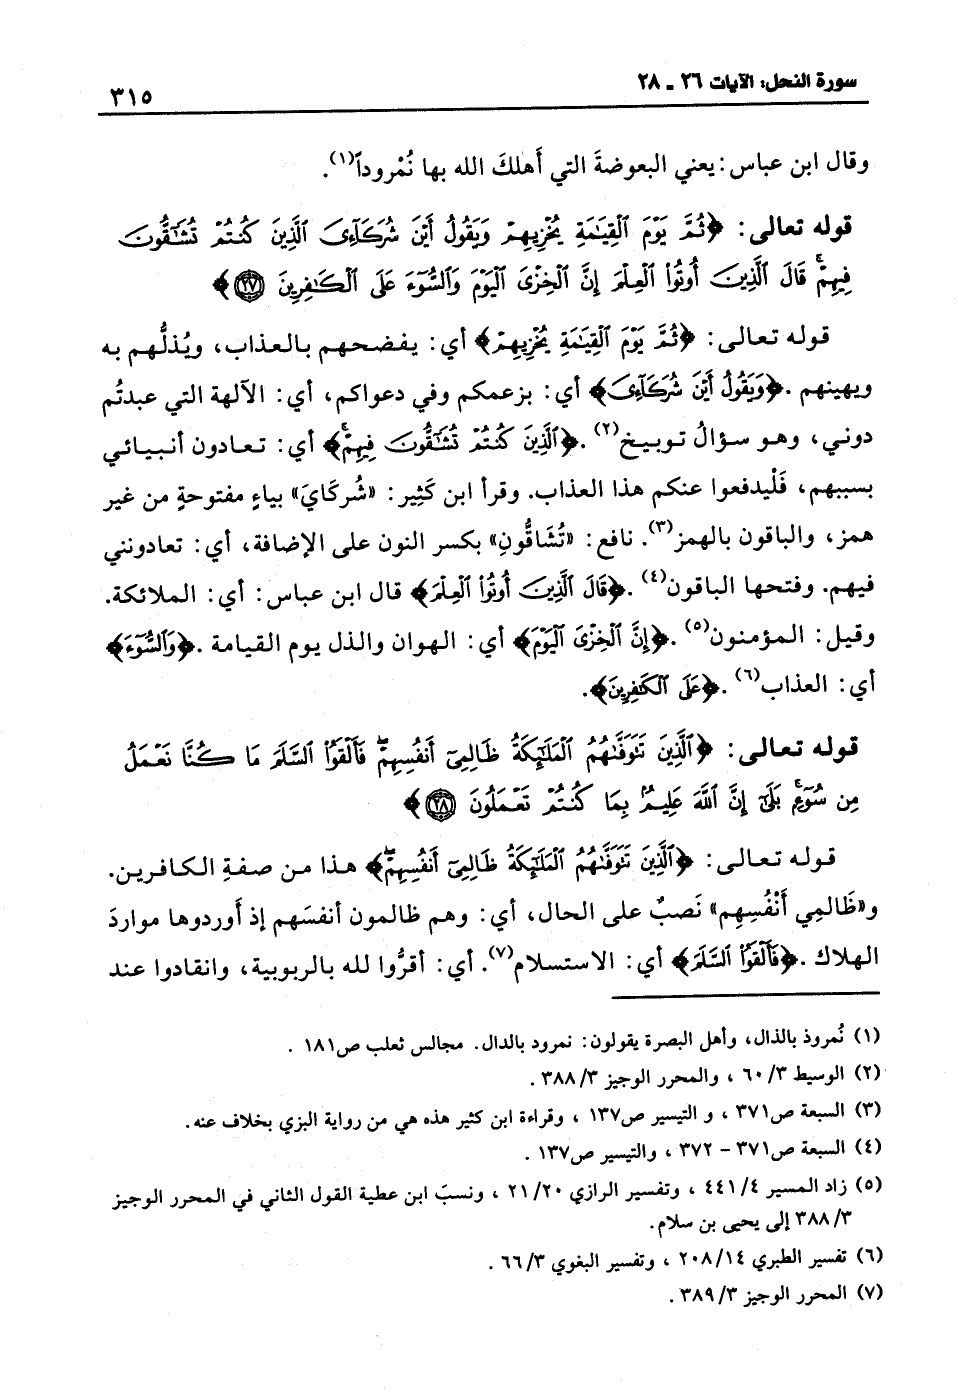 سورة النحل: الآيات ٢٦ ـ ٢٨
٣١٥
وقال ابن عباس: يعني البعوضةَ التي أَهلكَ الله بها نُمْروداً(١).
قوله تعالى: ﴿ثُمَّ يَوْمَ ٱلْقِيَٰمَةِ يُخْزِيهِمْ وَيَقُولُ أَيْنَ شُرَكَآءِىَ ٱلَّذِينَ كُنتُمْ تُشَٰٓقُّونَ
فِيهِمْ ۚ قَالَ ٱلَّذِينَ أُوتُوا۟ ٱلْعِلْمَ إِنَّ ٱلْخِزْىَ ٱلْيَوْمَ وَٱلسُّوٓءَ عَلَى ٱلْكَٰفِرِينَ ٢٧﴾
قوله تعالى: ﴿ثُمَّ يَوْمَ ٱلْقِيَٰمَةِ يُخْزِيهِمْ﴾ أي: يفضحهم بالعذاب، ويُذلُّهم به
ويهينهم. ﴿وَيَقُولُ أَيْنَ شُرَكَآءِىَ﴾ أي: بزعمكم وفي دعواكم، أي: الآلهة التي عبدتُم
دوني، وهو سؤالُ توبيخ(٢). ﴿ٱلَّذِينَ كُنتُمْ تُشَٰٓقُّونَ فِيهِمْ ۚ﴾ أي: تعادون أنبيائي
بسببهم، فَلْيدفعوا عنكم هذا العذاب. وقرأ ابن كَثِير: «شُركايَ» بياءٍ مفتوحةٍ من غير
همز، والباقون بالهمز(٣). نافع: «تُشَاقُّونِ» بكسر النون على الإضافة، أي: تعادونني
فيهم. وفتحها الباقون(٤). ﴿قَالَ ٱلَّذِينَ أُوتُوا۟ ٱلْعِلْمَ﴾ قال ابن عباس: أي: الملائكة.
وقيل: المؤمنون(٥). ﴿إِنَّ ٱلْخِزْىَ ٱلْيَوْمَ﴾ أي: الهوان والذل يوم القيامة. ﴿وَٱلسُّوٓءَ﴾
أي: العذاب(٦). ﴿عَلَى ٱلْكَٰفِرِينَ﴾.
قوله تعالى: ﴿ٱلَّذِينَ تَتَوَفَّىٰهُمُ ٱلْمَلَٰٓئِكَةُ ظَالِمِىٓ أَنفُسِهِمْ ۖ فَأَلْقَوُا۟ ٱلسَّلَمَ مَا كُنَّا نَعْمَلُ
مِن سُوٓءٍۭ ۚ بَلَىٰٓ إِنَّ ٱللَّهَ عَلِيمٌۢ بِمَا كُنتُمْ تَعْمَلُونَ ٢٨﴾
قوله تعالى: ﴿ٱلَّذِينَ تَتَوَفَّىٰهُمُ ٱلْمَلَٰٓئِكَةُ ظَالِمِىٓ أَنفُسِهِمْ ۖ﴾ هذا من صفةِ الكافرين.
و«ظَالِمِي أَنْفُسِهِم» نَصبٌ على الحال، أي: وهم ظالمون أنفسَهم إذ أَوردوها مواردَ
الهلاك. ﴿فَأَلْقَوُا۟ ٱلسَّلَمَ﴾ أي: الاستسلام(٧). أي: أقرُّوا لله بالربوبية، وانقادوا عند
(١) نُمروذ بالذال، وأهل البصرة يقولون: نمرود بالدال. مجالس ثعلب ص١٨١ .
(٢) الوسيط ٣/ ٦٠ ، والمحرر الوجيز ٣/ ٣٨٨ .
(٣) السبعة ص٣٧١ ، و التيسير ص١٣٧ ، وقراءة ابن كثير هذه هي من رواية البزي بخلاف عنه.
(٤) السبعة ص٣٧١ – ٣٧٢ ، والتيسير ص١٣٧ .
(٥) زاد المسير ٤/ ٤٤١ ، وتفسير الرازي ٢٠/ ٢١ ، ونسبَ ابن عطية القول الثاني في المحرر الوجيز
٣/ ٣٨٨ إلى يحيى بن سلام.
(٦) تفسير الطبري ١٤/ ٢٠٨ ، وتفسير البغوي ٣/ ٦٦ .
(٧) المحرر الوجيز ٣/ ٣٨٩ .